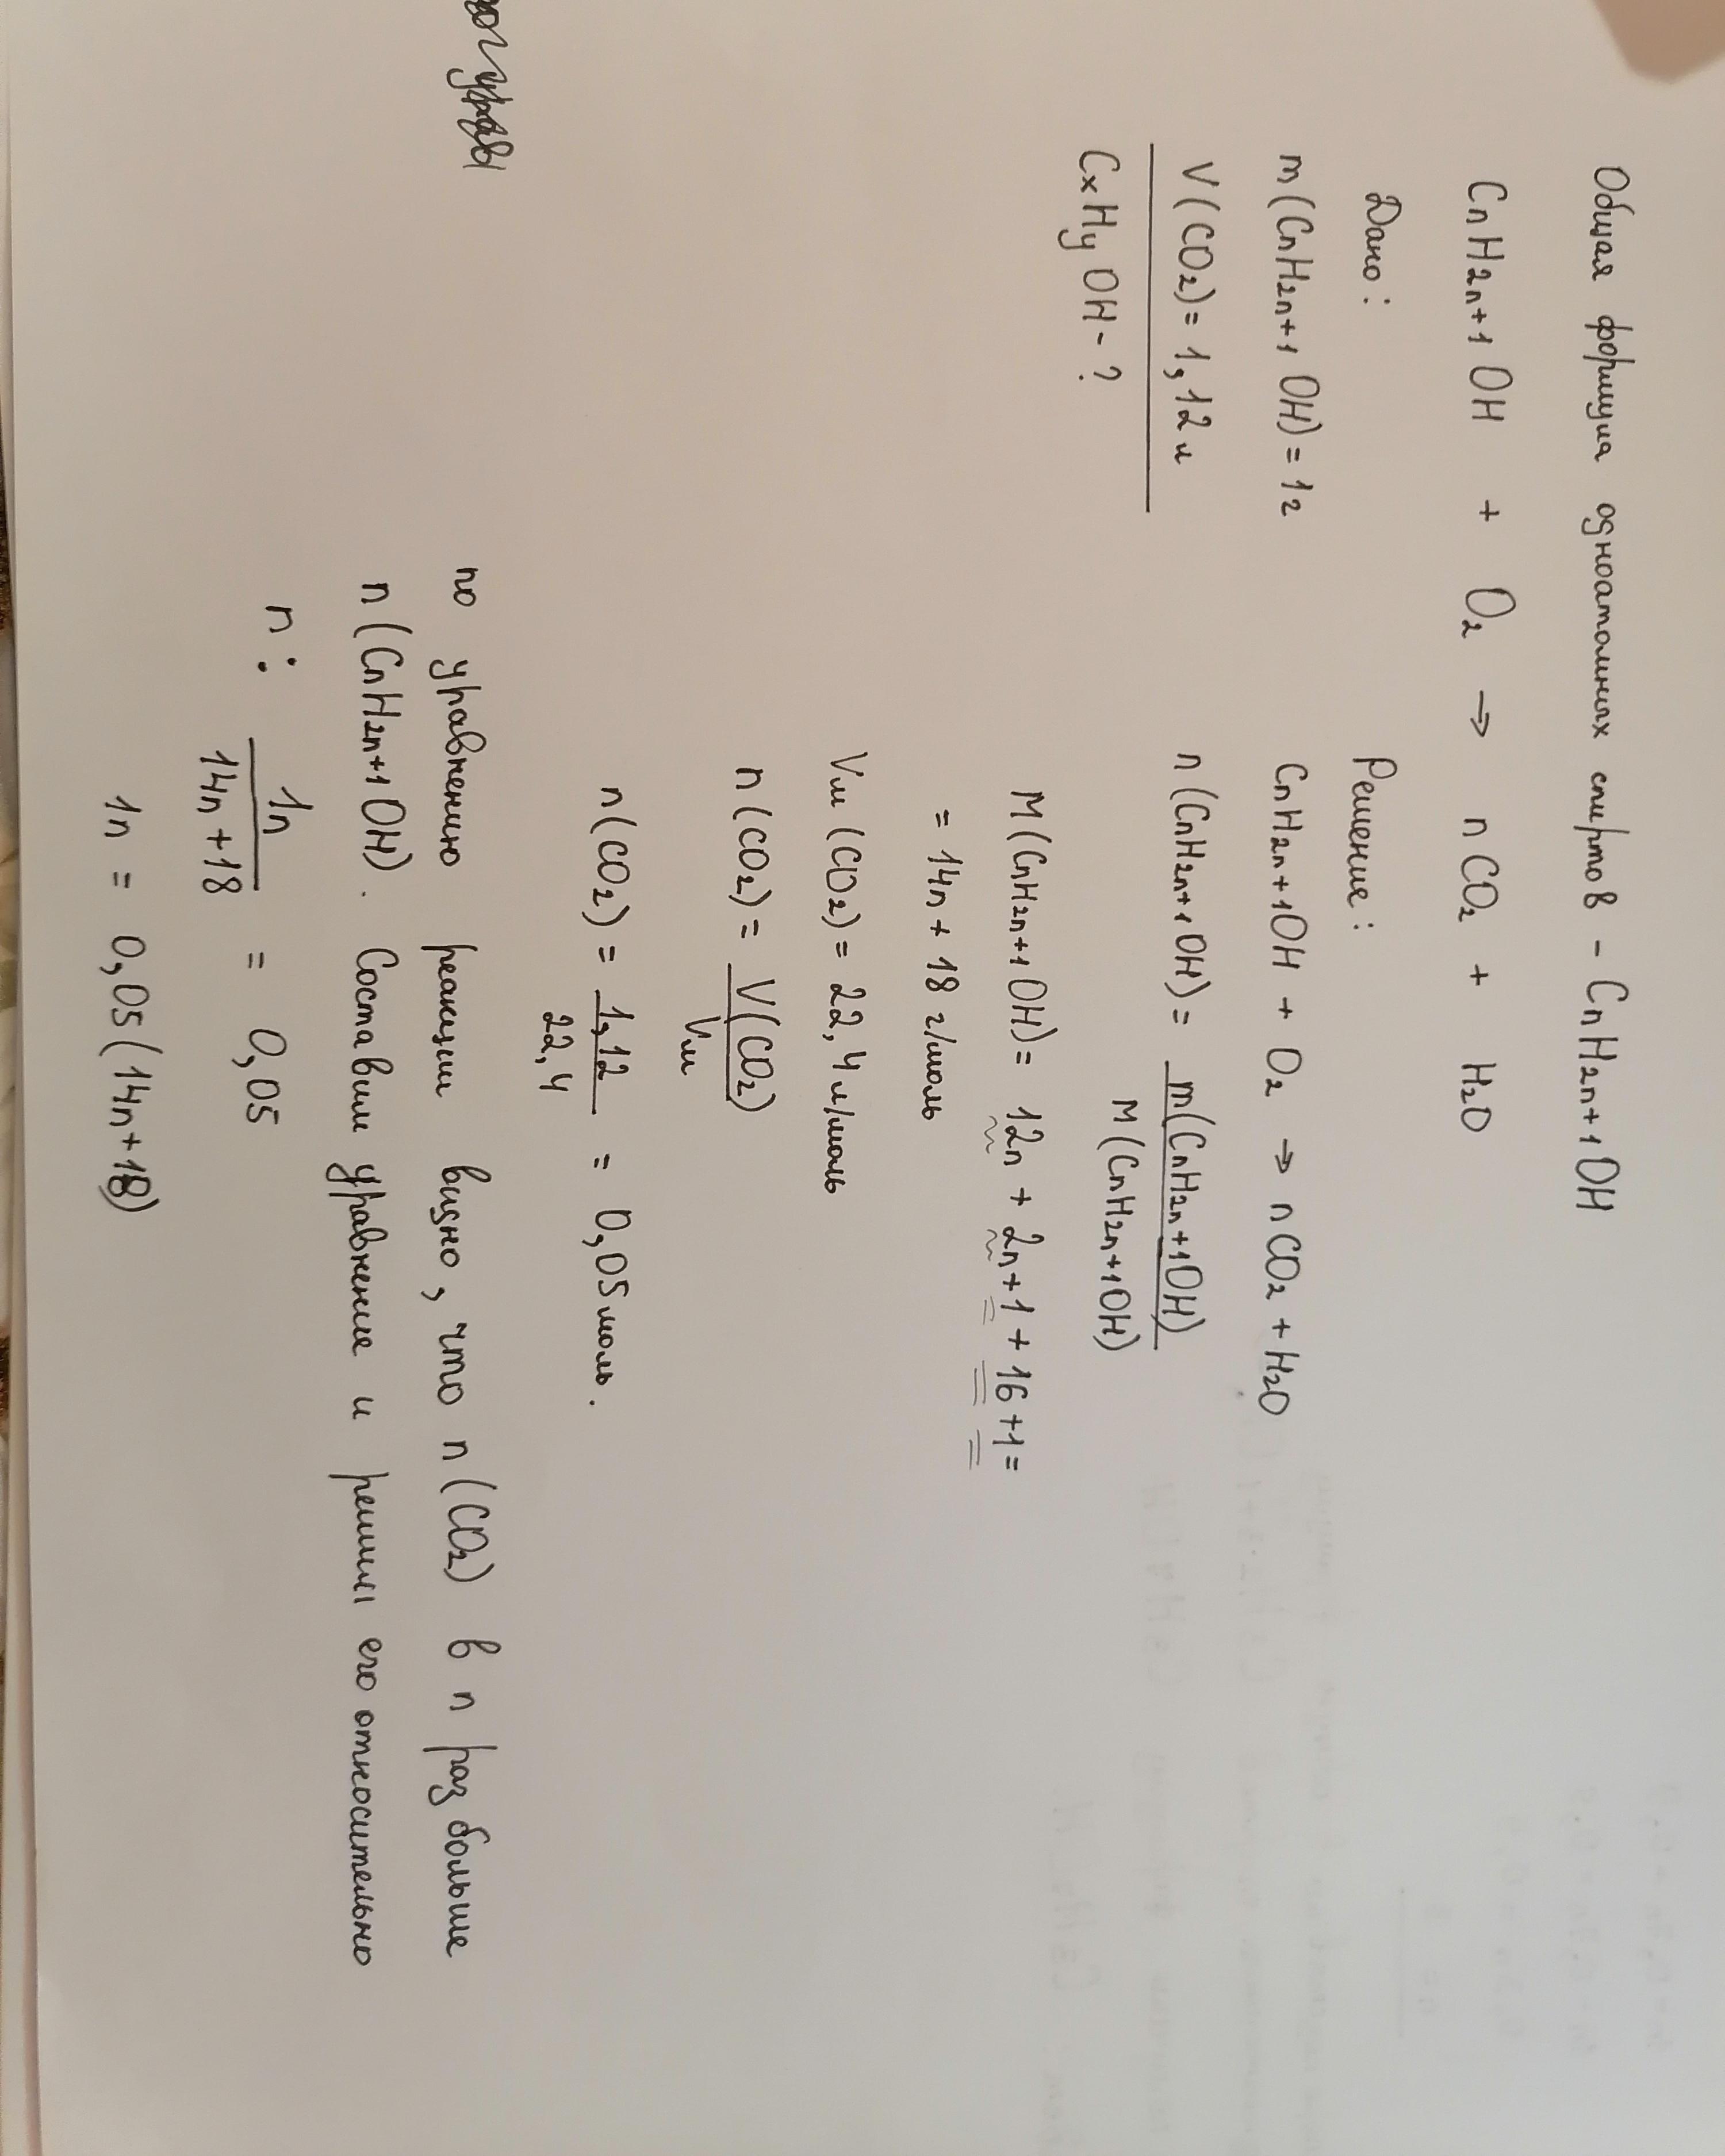 Общая формула одноатомных спиртов - CnH2n+1OH
CnH2n+1OH + O2 → nCO2 + H2O
Дано:
m(CnH2n+1OH)=1г
V(CO2)=1,12л
CxHyOH-?
Решение:
CnH2n+1OH + O2 → nCO2 + H2O
n(CnH2n+1OH)= m(CnH2n+1OH)
M(CnH2n+1OH)
M(CnH2n+1OH)= 12n + 2n+1 + 16+1=
= 14n + 18 г/моль
Vм(CO2)=22,4л/моль
n(CO2)= V(CO2)
Vм
n(CO2)= 1,12 = 0,05моль.
22,4
по уравнению реакции видно, что n(CO2) в n раз больше
n(CnH2n+1OH). Составим уравнение и решим его относительно
n: 1n
14n+18 = 0,05
1n = 0,05(14n+18)